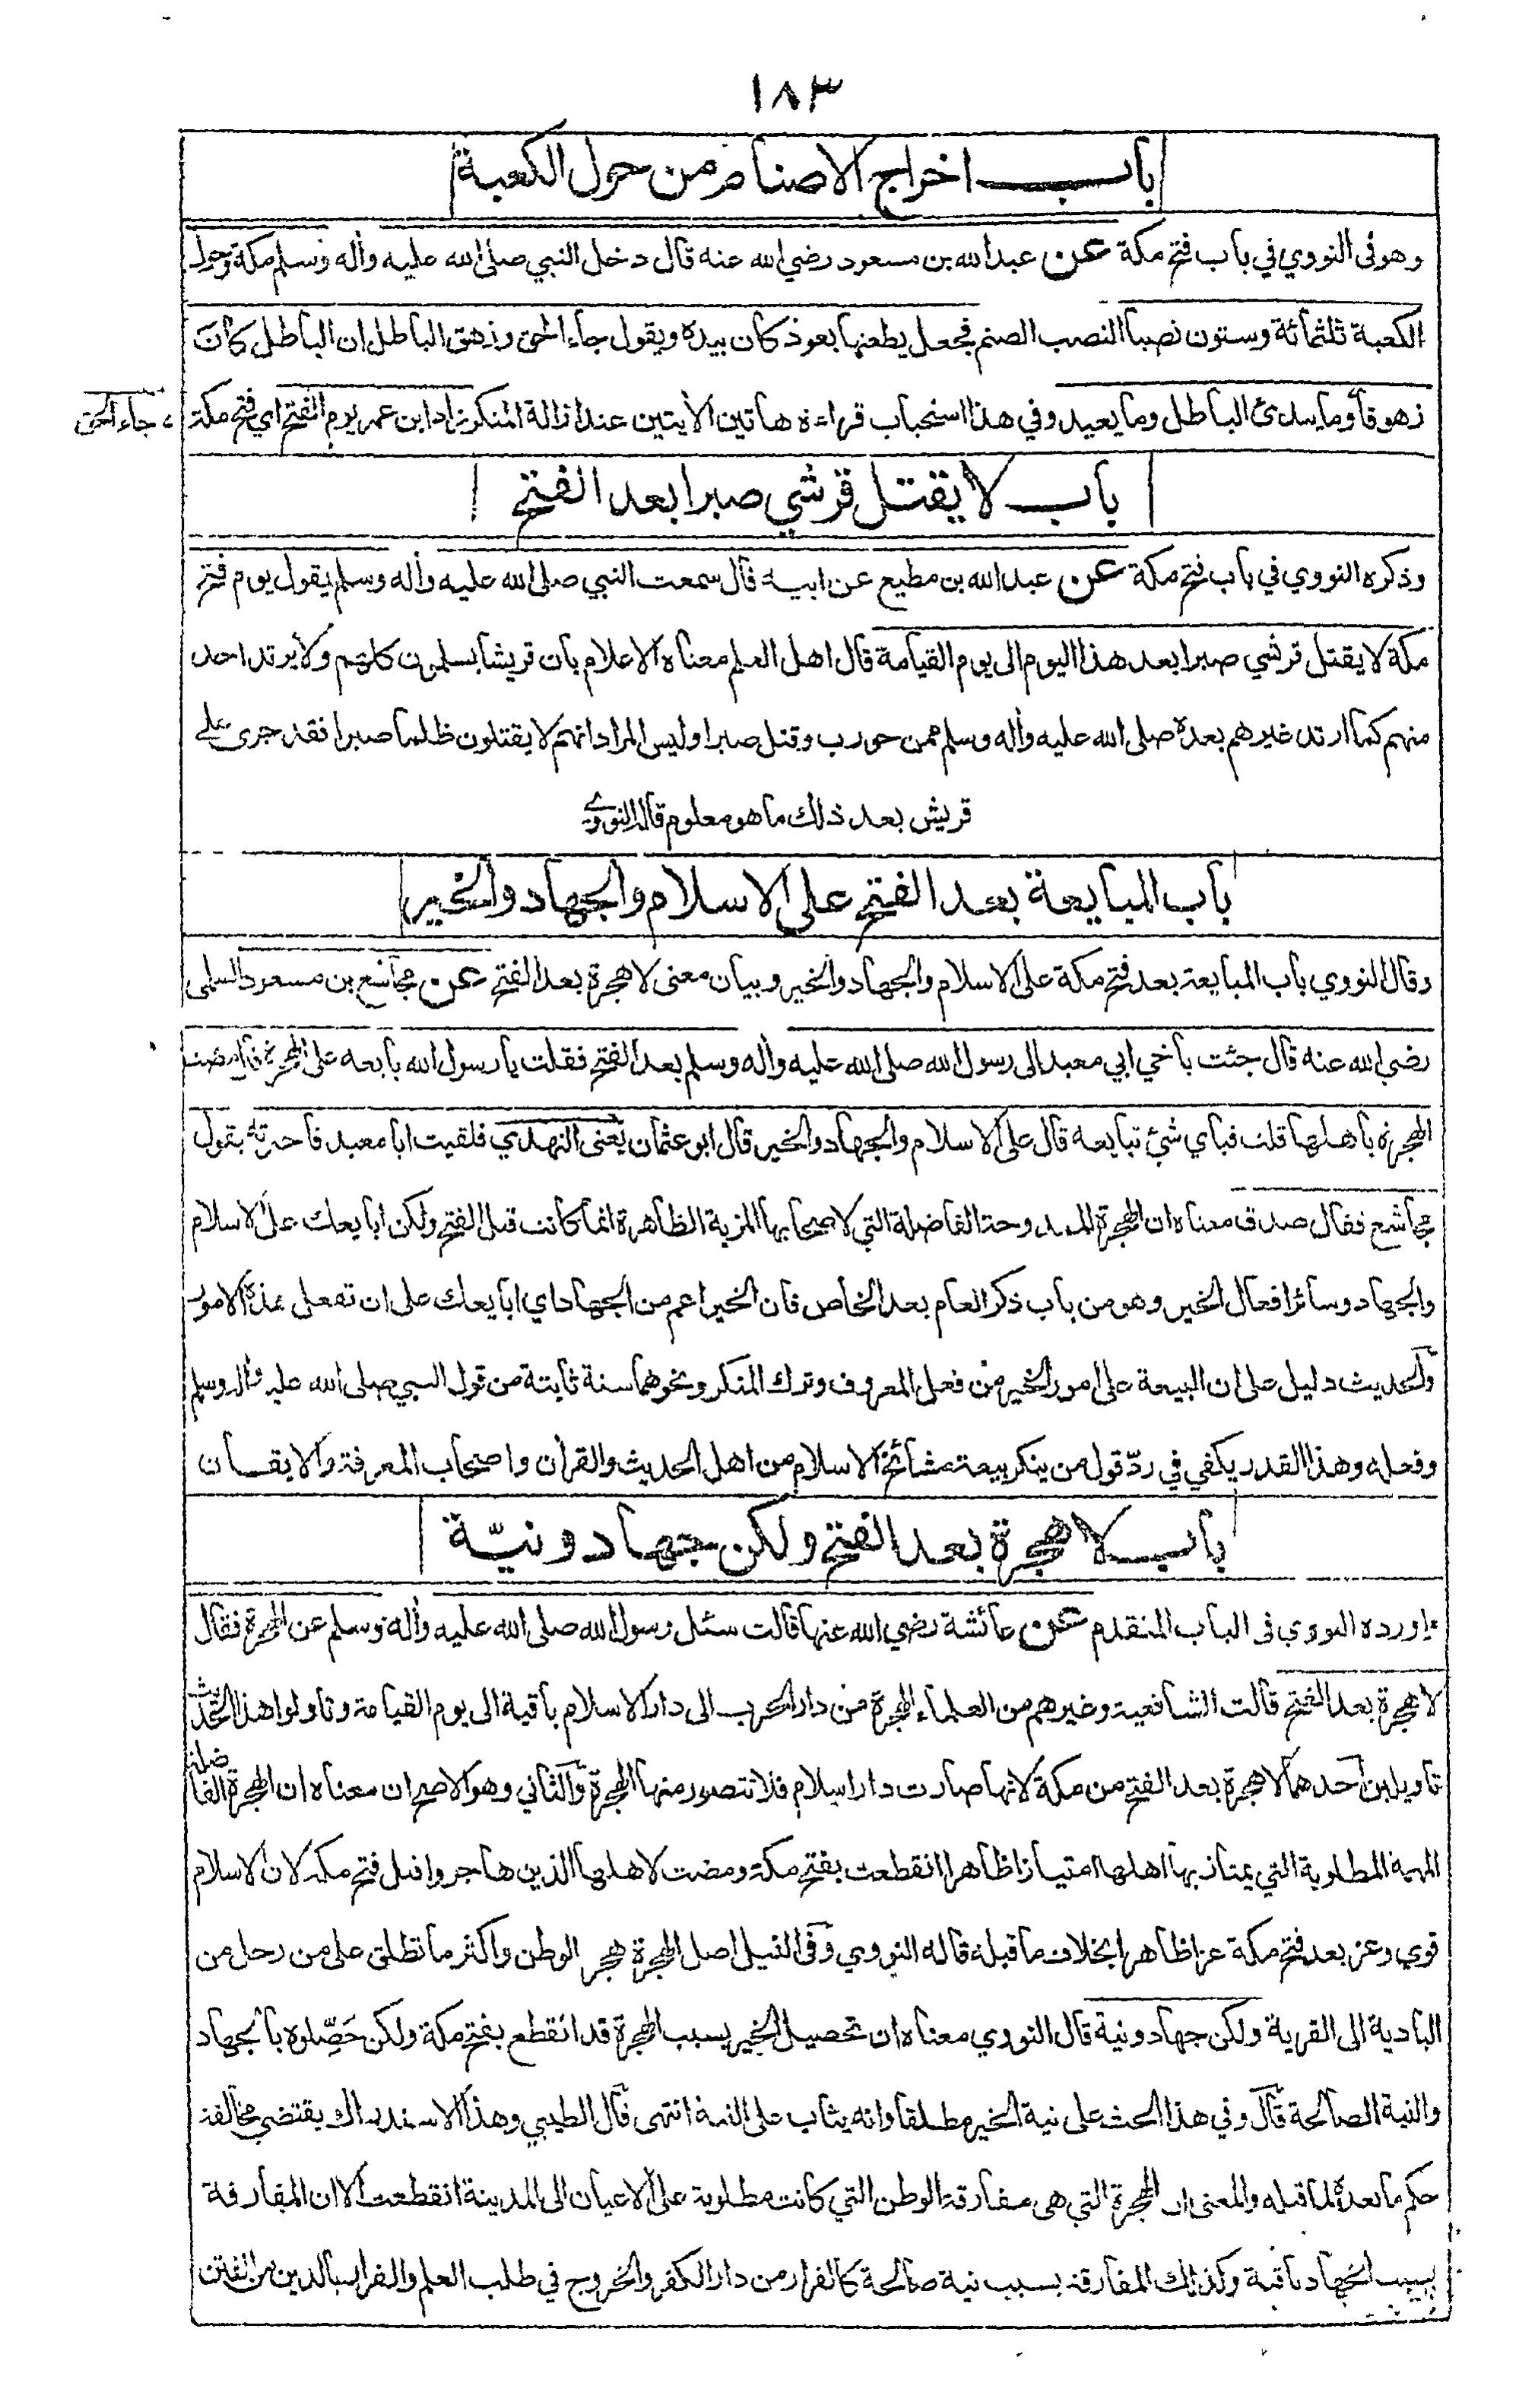 ١٨٣
باب اخراج الاصنام من حول الكعبة
وهو فى النووي في باب فتح مكة عن عبدالله بن مسعود رضي الله عنه قال دخل النبي صلى الله عليه وأله وسلم مكة وحول
الكعبة ثلثمائة وستون نصبا النصب الصنم فجعل يطعنها بعود كان بيده ويقول جاء الحق وزهق الباطل ان الباطل كان
زهوقا وما يبدئ الباطل وما يعيد وفي هذا استحباب قراءة هاتين الأيتين عند ازالة المنكر زاد ابن عمر يوم الفتح اي فتح مكة
جاء الحق
باب لا يقتل قرشي صبرا بعد الفتح
وذكره النووي في باب فتح مكة عن عبدالله بن مطيع عن ابيه قال سمعت النبي صلى الله عليه وأله وسلم يقول يوم فتح
مكة لا يقتل قرشي صبرا بعد هذا اليوم الى يوم القيامة قال اهل العلم معناه الاعلام بان قريشا يسلمون كلهم ولا يرتد احد
منهم كما ارتد غيرهم بعده صلى الله عليه وأله وسلم ممن حورب وقتل صبرا وليس المراد انهم لا يقتلون ظلما صبرا فقد جرى على
قريش بعد ذلك ما هو معلوم قاله النووي
باب المبايعة بعد الفتح على الاسلام والجهاد والخير
وقال النووي باب المبايعة بعد فتح مكة على الاسلام والجهاد والخير وبيان معنى لا هجرة بعد الفتح عن مجاشع بن مسعود السلمي
رضي الله عنه قال جئت بأخي ابي معبد الى رسول الله صلى الله عليه وأله وسلم بعد الفتح فقلت يا رسول الله بايعه على الهجرة قال مضت
الهجرة بأهلها قلت فباي شئ تبايعه قال على الاسلام والجهاد والخير قال ابو عثمان يعنى النهدي فلقيت ابا معبد فاخبرته بقول
مجاشع فقال صدق معناه ان الهجرة الممدوحة الفاضلة التي لاصحابها المزية الظاهرة انما كانت قبل الفتح ولكن ابايعك على الاسلام
والجهاد وسائر افعال الخير وهو من باب ذكر العام بعد الخاص فان الخير اعم من الجهاد اي ابايعك على ان تفعل هذه الامور
والحديث دليل على ان البيعة على امور الخير من فعل المعروف وترك المنكر ونحوهما سنة ثابتة من قول النبي صلى الله عليه وأله وسلم
وفعله وهذا القدر يكفي في ردّ قول من ينكر بيعة مشائخ الاسلام من اهل الحديث والقرأن واصحاب المعرفة والايقان
باب لا هجرة بعد الفتح ولكن جهاد ونيّة
اورده النووي فى الباب المتقدم عن عائشة رضي الله عنها قالت سئل رسول الله صلى الله عليه وأله وسلم عن الهجرة فقال
لا هجرة بعد الفتح قالت الشافعية وغيرهم من العلماء الهجرة من دار الحرب الى دار الاسلام باقية الى يوم القيامة وتاولوا هذا الحديث
تاويلين احدهما لا هجرة بعد الفتح من مكة لانها صارت دار اسلام فلا تتصور منها الهجرة والثاني وهو الاصح ان معناه ان الهجرة الفاضلة
المهمة المطلوبة التي يمتاز بها اهلها امتيازا ظاهرا انقطعت بفتح مكة ومضت لاهلها الذين هاجروا قبل فتح مكة لان الاسلام
قوي وعز بعد فتح مكة عزا ظاهرا بخلاف ما قبله قاله النووي وفى النيل اصل الهجرة هجر الوطن واكثر ما تطلق على من رحل من
البادية الى القرية ولكن جهاد ونية قال النووي معناه ان تحصيل الخير بسبب الهجرة قد انقطع بفتح مكة ولكن حَصِّلوه بالجهاد
والنية الصالحة قال وفي هذا الحث على نية الخير مطلقا وانه يثاب على النية انتهى قال الطيبي وهذا الاستدراك يقتضي مخالفة
حكم ما بعده لما قبله والمعنى ان الهجرة التي هى مفارقة الوطن التي كانت مطلوبة على الاعيان الى المدينة انقطعت الا ان المفارقة
بسبب الجهاد باقية وكذلك المفارقة بسبب نية صالحة كالفرار من دار الكفر والخروج في طلب العلم والفرار بالدين من الفتن